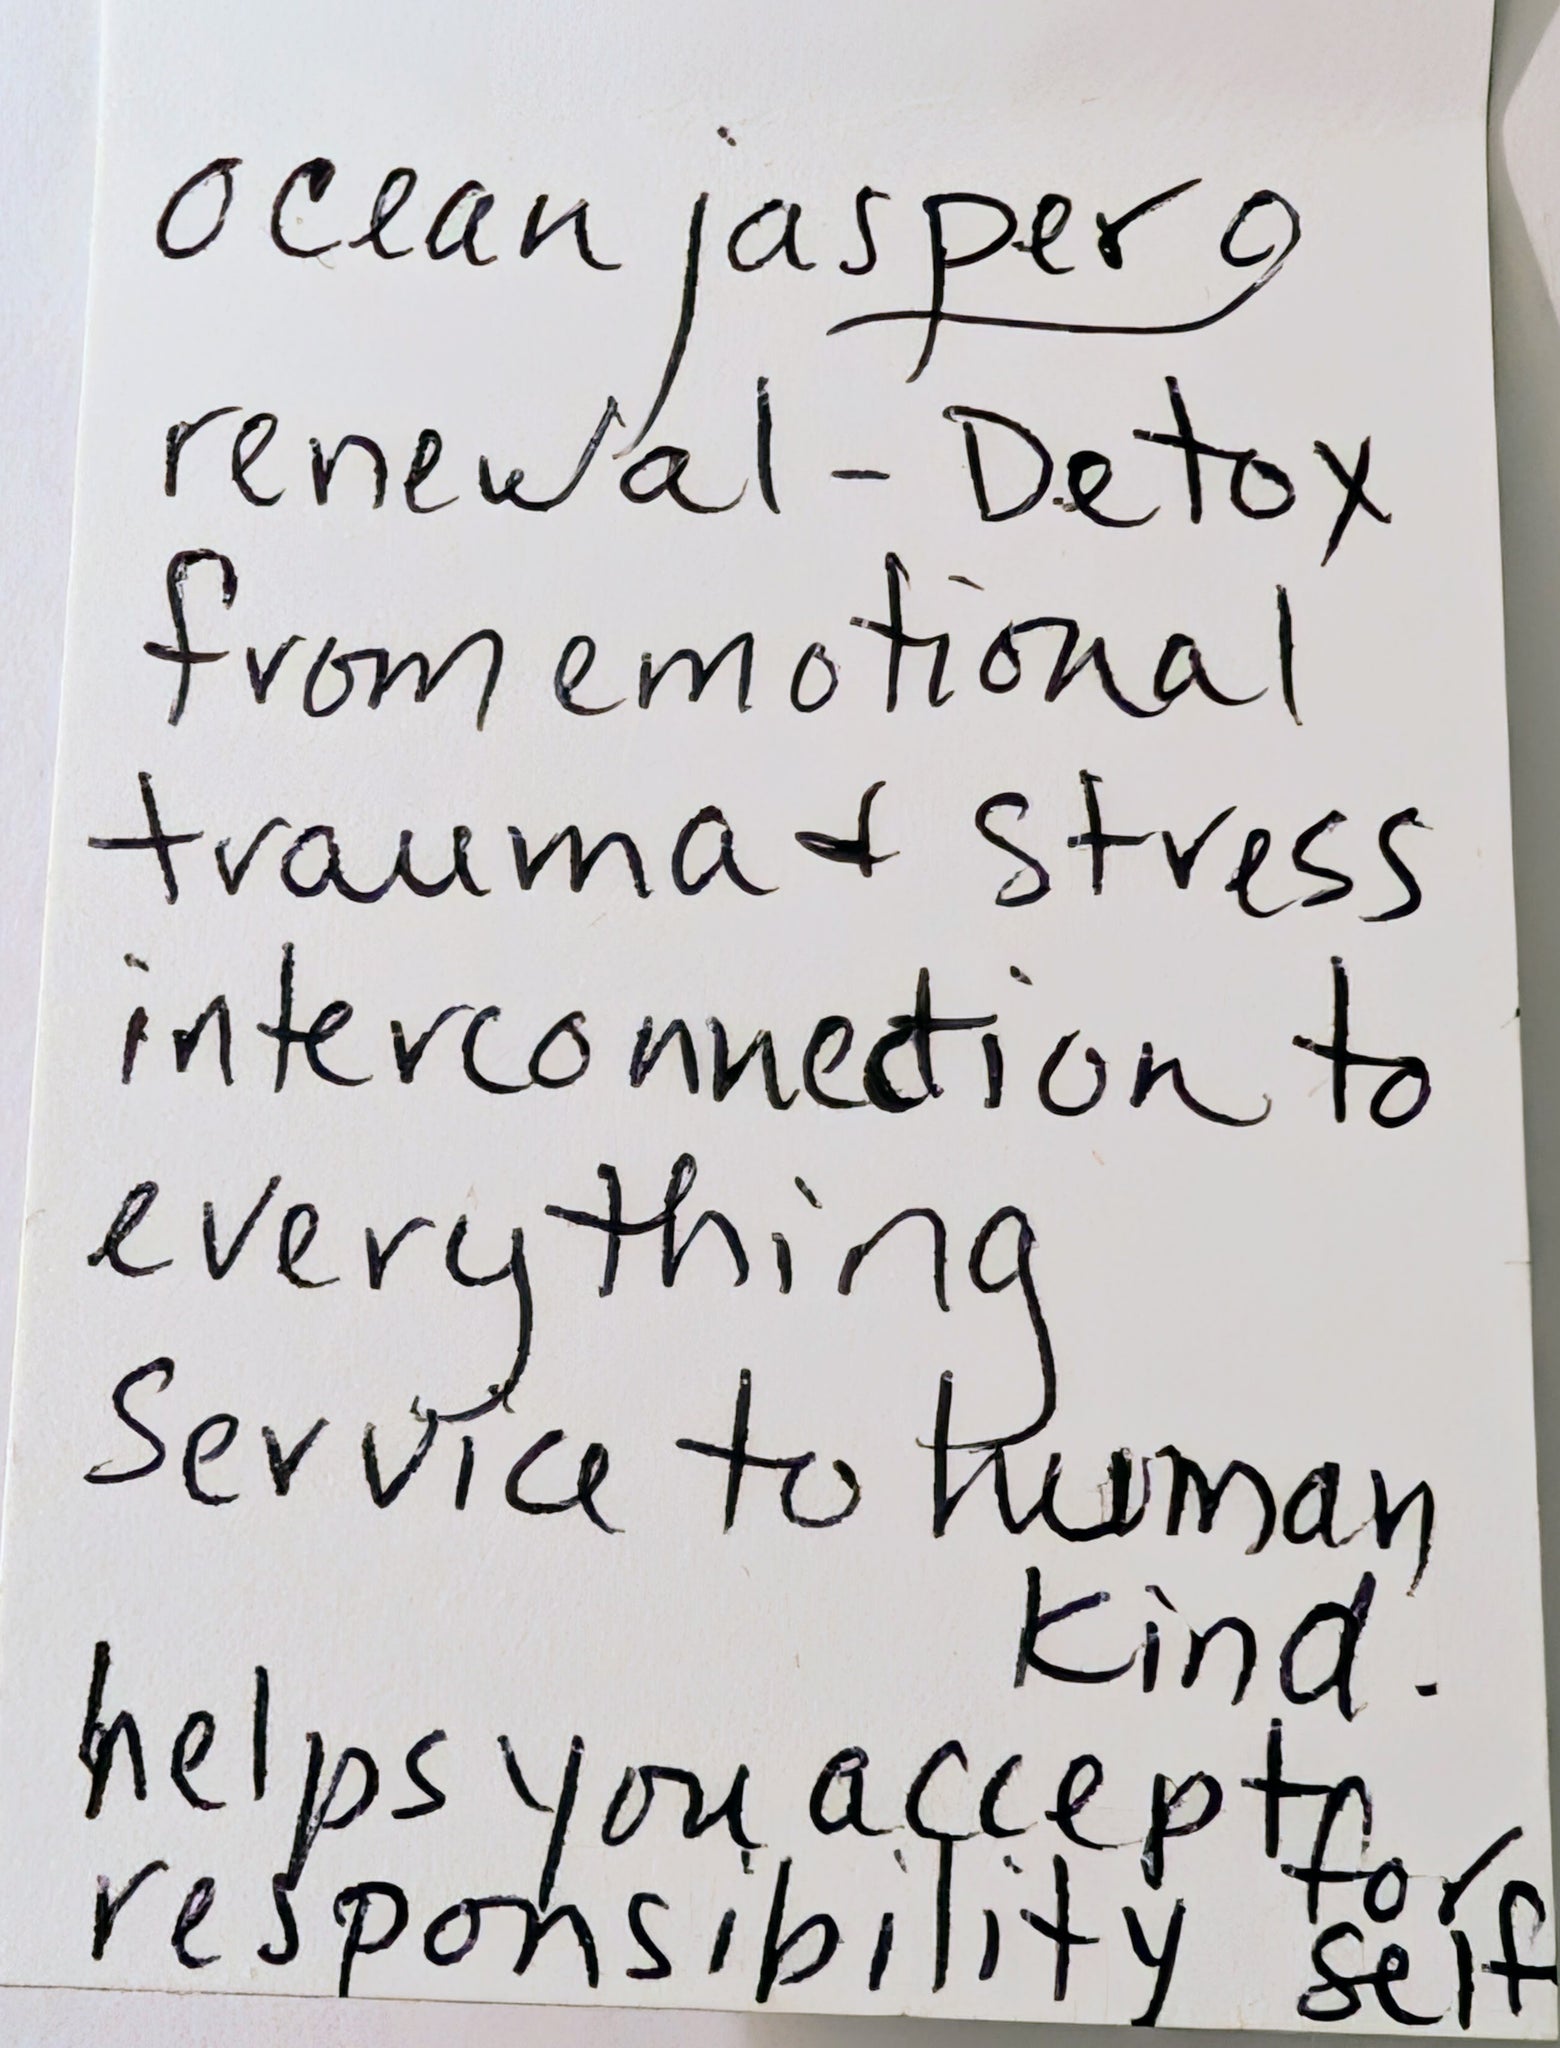 ocean jasper 9
renewal - Detox
from emotional
trauma + stress
interconnection to
everything
Service to human
kind.
helps you accept
responsibility for
self